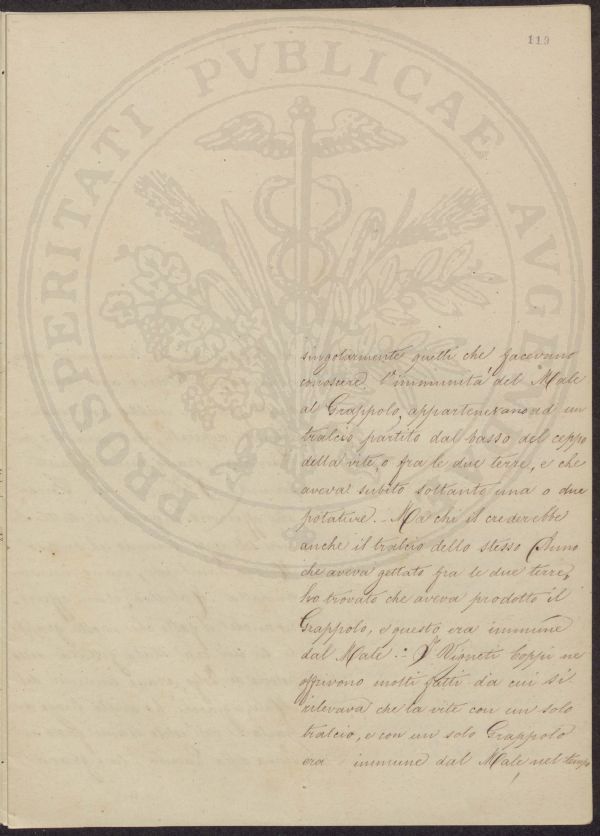 119
PROSPERITATI PVBLICAE AVGENDAE
singolarmente quelli che facevano
conoscere l'immunità del Male
al Grappolo, appartenevano ad un
tralcio partito dal basso del ceppo
della vite, o fra le due terre, e che
aveva subito soltanto una o due
potature. - Ma chi il crederebbe
anche il tralcio dello stesso Anno
che aveva gettato fra le due terre,
ho trovato che aveva prodotto il
Grappolo, e questo era immune
dal Male. - I Vigneti Coppi ne
offrivono molti fatti da cui si
rilevava che la vite con un solo
tralcio, e con un solo Grappolo
era immune dal Male nel tempo